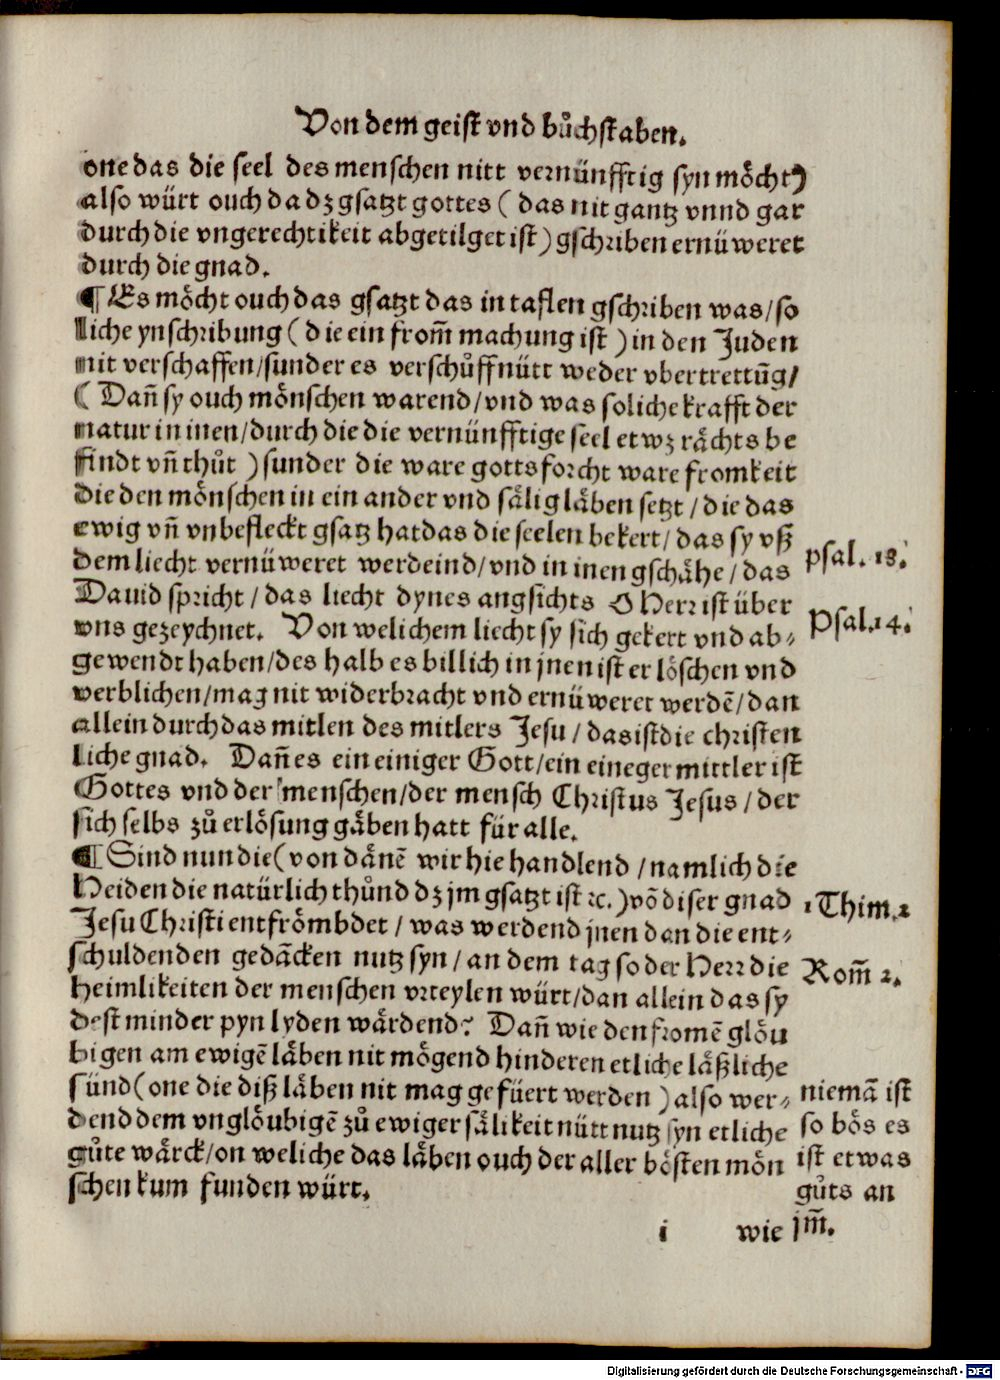 Von dem geist vnd bůchstaben.
one das die seel des menschen nitt vernünfftig syn möcht)
also würt ouch da dz gsatzt gottes ( das nit gantz vnnd gar
durch die vngerechtikeit abgetilget ist ) gschriben ernüweret
durch die gnad.
¶ Es möcht ouch das gsatzt das in taflen gschriben was / so
liche ynschribung ( die ein from̃ machung ist ) in den Juden
nit verschaffen / sunder es verschůff nütt weder vbertrettũg /
( Dañ sy ouch mönschen warend / vnd was soliche krafft der
natur in inen / durch die die vernünfftige seel etwz rächts be
findt vñ thůt ) sunder die ware gottsforcht ware fromkeit
die den mönschen in ein ander vnd sälig läben setzt / die das
ewig vñ vnbefleckt gsatz hat das die seelen bekert / das sy vß
dem liecht vernüweret werdeind / vnd in inen gschähe / das
Psal. 18.
Dauid spricht / das liecht dynes angsichts O Herr ist über
vns gezeychnet. Von welichem liecht sy sich gekert vnd ab⸗
Psal. 14.
gewendt haben / des halb es billich in jnen ist erlöschen vnd
verblichen / mag nit widerbracht vnd ernüweret werdẽ / dan
allein durch das mitlen des mitlers Jesu / das ist die christen
liche gnad. Dañ es ein einiger Gott / ein eineger mittler ist
Gottes vnd der menschen / der mensch Christus Jesus / der
sich selbs zů erlösung gäben hatt für alle.
¶ Sind nun die ( von dänẽ wir hie handlend / namlich die
Heiden die natürlich thůnd dz jm gsatzt ist ꝛc. ) võ diser gnad
1 Thim. 2
Jesu Christi entfrömbdet / was werdend jnen dan die ent⸗
schuldenden gedãcken nutz syn / an dem tag so der Herr die
Rom̃ 2.
heimlikeiten der menschen vrteylen würt / dan allein das sy
dest minder pyn lyden wärdend? Dañ wie den fromẽ glöu
bigen am ewigẽ läben nit mögend hinderen etliche läßliche
sünd ( one die diß läben nit mag gefüert werden ) also wer⸗
dend dem vnglöubigẽ zů ewiger sälikeit nütt nutz syn etliche
gůte wärck / on weliche das läben ouch der aller bösten mön
schen kum funden würt.
niemã ist
so bös es
ist etwas
gůts an
jm̃.
i wie
Digitalisierung gefördert durch die Deutsche Forschungsgemeinschaft - DFG